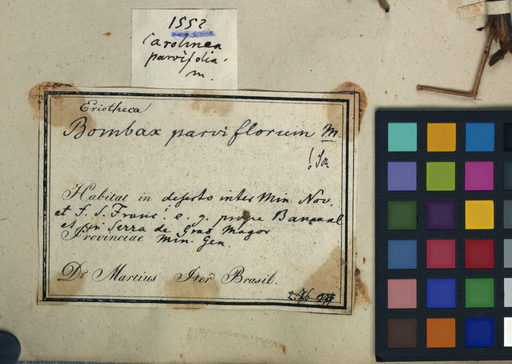 1552
Carolinea
parvifolia.
m.
Eriotheca
Bombax parviflorum M
Habitat in deserto inter Min. Nov.
et F. S. Franc. e. g. prope Bananal
et in Serra de Grao Magor
Provinciae Min. Gen.
Dr. Martius Iter Brasil.